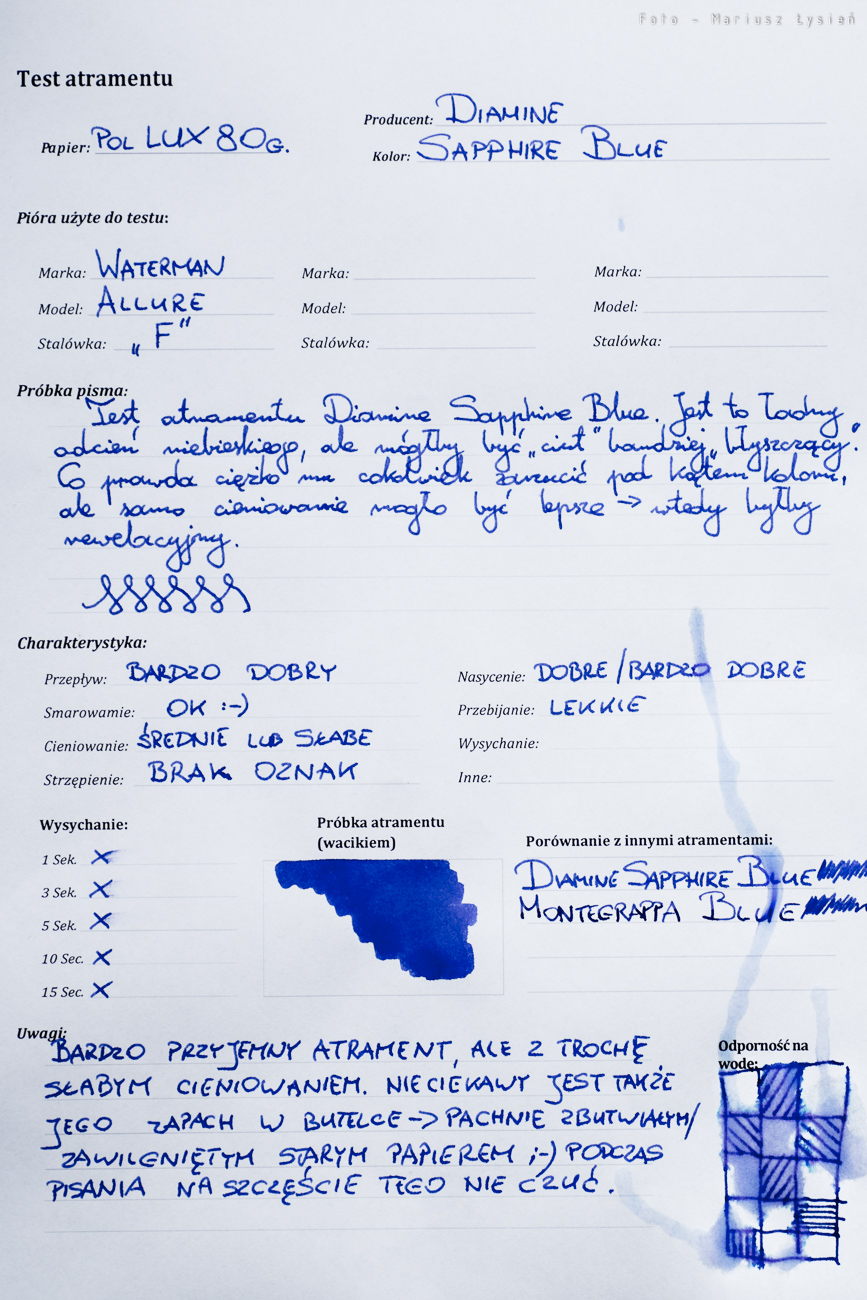 Foto - Mariusz Łysień
Test atramentu
Papier: POL LUX 80G.
Producent: DIAMINE
Kolor: SAPPHIRE BLUE
Pióra użyte do testu:
Marka: WATERMAN Marka: Marka:
Model: ALLURE Model: Model:
Stalówka: „F" Stalówka: Stalówka:
Próbka pisma:
Test atramentu Diamine Sapphire Blue. Jest to ładny
odcień niebieskiego, ale mógłby być „ciut" bardziej „błyszczący".
Co prawda ciężko mu cokolwiek zarzucić pod kątem koloru,
ale samo cieniowanie mogło być lepsze → wtedy byłby
rewelacyjny.
Charakterystyka:
Przepływ: BARDZO DOBRY Nasycenie: DOBRE/BARDZO DOBRE
Smarowamie: OK :-) Przebijanie: LEKKIE
Cieniowanie: ŚREDNIE LUB SŁABE Wysychanie:
Strzępienie: BRAK OZNAK Inne:
Wysychanie:
1 Sek. X
3 Sek. X
5 Sek. X
10 Sec. X
15 Sec. X
Próbka atramentu
(wacikiem)
Porównanie z innymi atramentami:
DIAMINE SAPPHIRE BLUE
MONTEGRAPPA BLUE
Uwagi:
BARDZO PRZYJEMNY ATRAMENT, ALE Z TROCHĘ
SŁABYM CIENIOWANIEM. NIECIEKAWY JEST TAKŻE
JEGO ZAPACH W BUTELCE → PACHNIE ZBUTWIAŁYM/
ZAWILGNIĘTYM STARYM PAPIEREM ;-) PODCZAS
PISANIA NA SZCZĘŚCIE TEGO NIE CZUĆ.
Odporność na
wodę: